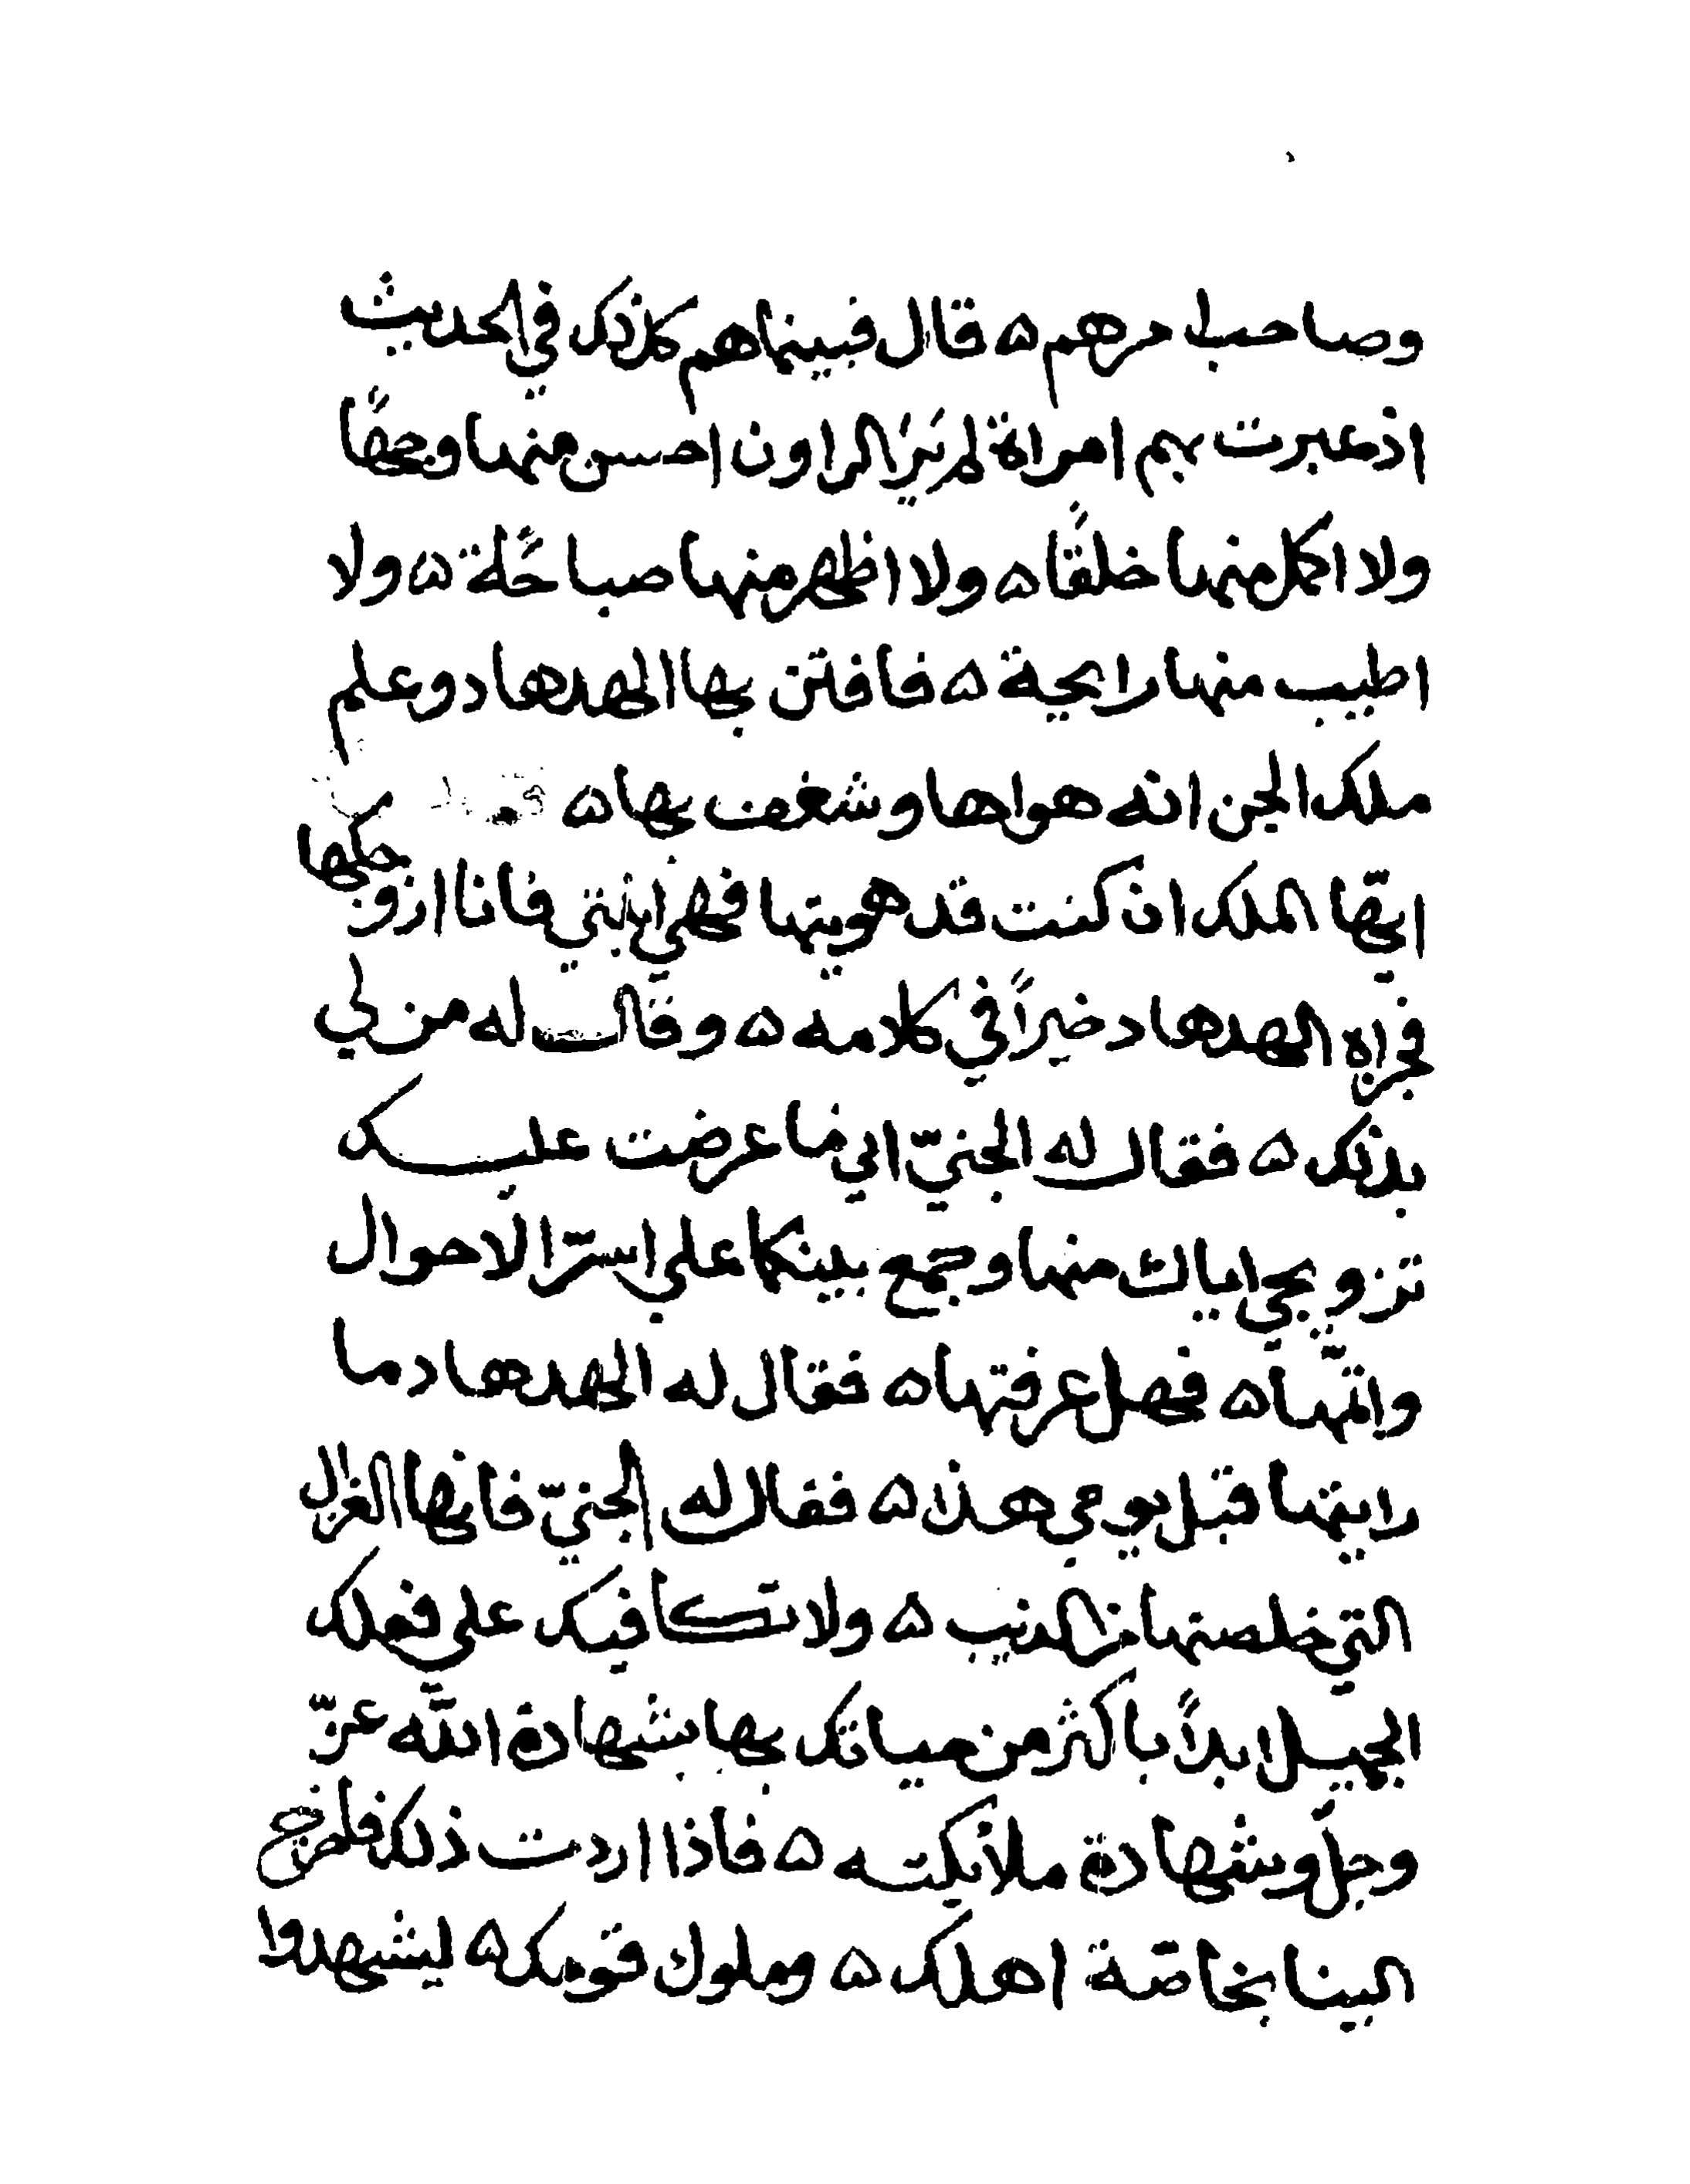 وصاحب امرهم ۵ قال فبينما هم كذلك في الحديث
اذ عبرت بهم امراة لم يَرَ الراون احسن منها وجهًا
ولا اكمل منها خلقًا ۵ ولا اظهر منها صباحَة ۵ ولا
اطيب منها رايحة ۵ فافتتن بها الهدهاد وعلم
ملك الجن انه هواها وشغف بها ۵
ايّها الملك ان كنت قد هويتها فهي ابنتي فانا ازوجكها
فجزاه الهدهاد خيرًا في كلامه ۵ وقال له من لي
بذلك ۵ فقال له الجنيّ اني فا عرضت عليك
تزويجي اياك منها وجمع بينكما على اسرّ الاحوال
واتمّها ۵ فهل عرفتها ۵ فقال له الهدهاد ما
رايتها قبل يومي هذا ۵ فقال له الجنيّ فانها الغزال
التي خلصتها من الذيب ۵ ولا تكافيك على فعلك
الجميل ابدًا باكثر من حياتك بها بشهادة الله عزّ
وجلّ وشهادة ملائكته ۵ فاذا اردت ذلك فلتخرج
الينا بخاصّة اهلك ۵ وملوك قومك ۵ ليشهدوا